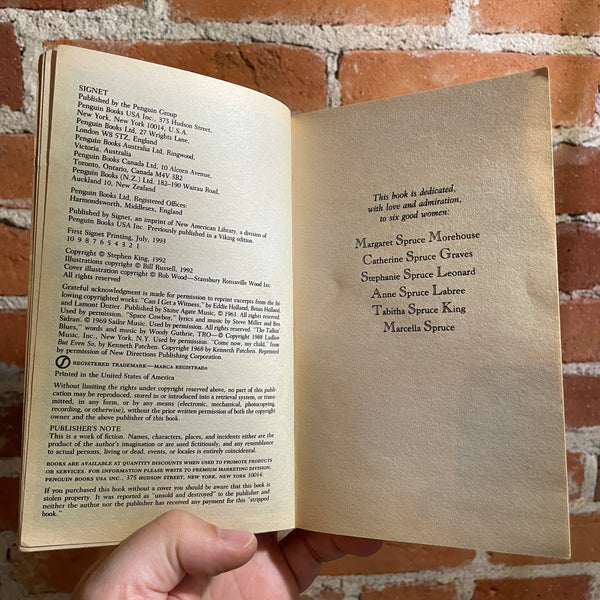 SIGNET
Published by the Penguin Group
Penguin Books USA Inc., 375 Hudson Street,
New York, New York 10014, U.S.A.
Penguin Books Ltd, 27 Wrights Lane,
London W8 5TZ, England
Penguin Books Australia Ltd, Ringwood,
Victoria, Australia
Penguin Books Canada Ltd, 10 Alcorn Avenue,
Toronto, Ontario, Canada M4V 3B2
Penguin Books (N.Z.) Ltd, 182–190 Wairau Road,
Auckland 10, New Zealand
Penguin Books Ltd, Registered Offices:
Harmondsworth, Middlesex, England
Published by Signet, an imprint of New American Library, a division of
Penguin Books USA Inc. Previously published in a Viking edition.
First Signet Printing, July, 1993
10 9 8 7 6 5 4 3 2 1
Copyright © Stephen King, 1992
Illustrations copyright © Bill Russell, 1992
Cover illustration copyright © Rob Wood—Stansbury Ronsaville Wood Inc.
All rights reserved
Grateful acknowledgment is made for permission to reprint excerpts from the fol-
lowing copyrighted works: "Can I Get a Witness," by Eddie Holland, Brian Holland,
and Lamont Dozier. Published by Stone Agate Music, © 1963. All rights reserved.
Used by permission. "Space Cowboy," lyrics and music by Steve Miller and Ben
Sidran. © 1969 Sailor Music. Used by permission. All rights reserved. "The Talkin'
Blues," words and music by Woody Guthrie, TRO—© Copyright 1988 Ludlow
Music, Inc., New York, N.Y. Used by permission. "Come now, my child," from
But Even So, by Kenneth Patchen. Copyright 1968 by Kenneth Patchen. Reprinted
by permission of New Directions Publishing Corporation.
REGISTERED TRADEMARK—MARCA REGISTRADA
Printed in the United States of America
Without limiting the rights under copyright reserved above, no part of this publi-
cation may be reproduced, stored in or introduced into a retrieval system, or trans-
mitted, in any form, or by any means (electronic, mechanical, photocopying,
recording, or otherwise), without the prior written permission of both the copyright
owner and the above publisher of this book.
PUBLISHER'S NOTE
This is a work of fiction. Names, characters, places, and incidents either are the
product of the author's imagination or are used fictitiously, and any resemblance
to actual persons, living or dead, events, or locales is entirely coincidental.
BOOKS ARE AVAILABLE AT QUANTITY DISCOUNTS WHEN USED TO PROMOTE PRODUCTS
OR SERVICES. FOR INFORMATION PLEASE WRITE TO PREMIUM MARKETING DIVISION,
PENGUIN BOOKS USA INC., 375 HUDSON STREET, NEW YORK, NEW YORK 10014.
If you purchased this book without a cover you should be aware that this book is
stolen property. It was reported as "unsold and destroyed" to the publisher and
neither the author nor the publisher has received any payment for this "stripped
book."
This book is dedicated,
with love and admiration,
to six good women:
Margaret Spruce Morehouse
Catherine Spruce Graves
Stephanie Spruce Leonard
Anne Spruce Labree
Tabitha Spruce King
Marcella Spruce